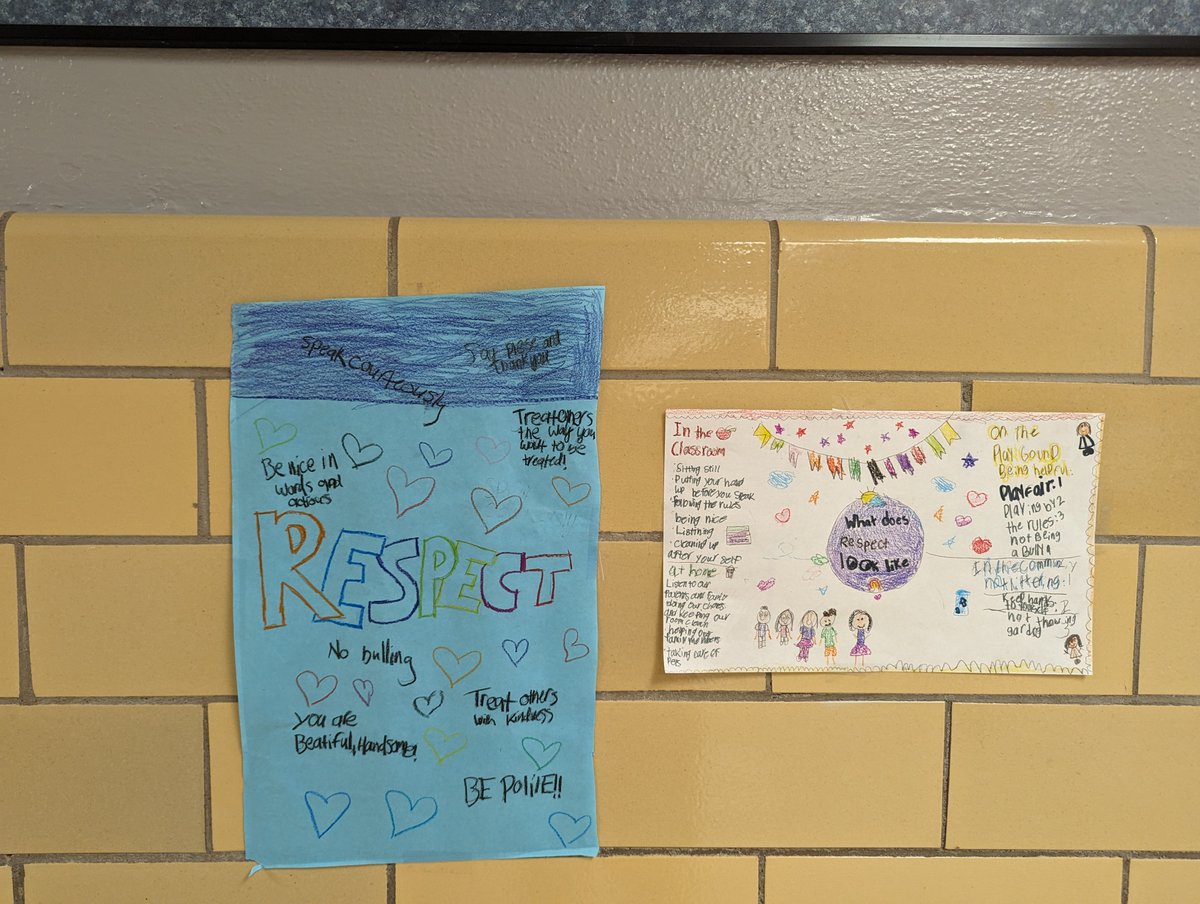 Speak courteously
Say Please and
thank you
Treat others
the way you
want to be
treated!
Be nice in
words and
actions
RESPECT
No bulling
You are
Beatiful, Handsome!
Treat others
with kindness
BE Polite!!
In the
Classroom
Sitting still
Putting your hand
up before you speak
following the rules
being nice
Listning
Cleaning up
after your self
at home
Listen to our
Parents and family
doing our chores
and keeping our
room clean
helping our
family members
taking care of
Pets
What does
Respect
look like
on the
Playground
Being helpful:
Playfair:1
Playing by:2
the rules:3
not Being
a Bully
In the community
not littering:1
Keep hands
to yourself:2
not throwing